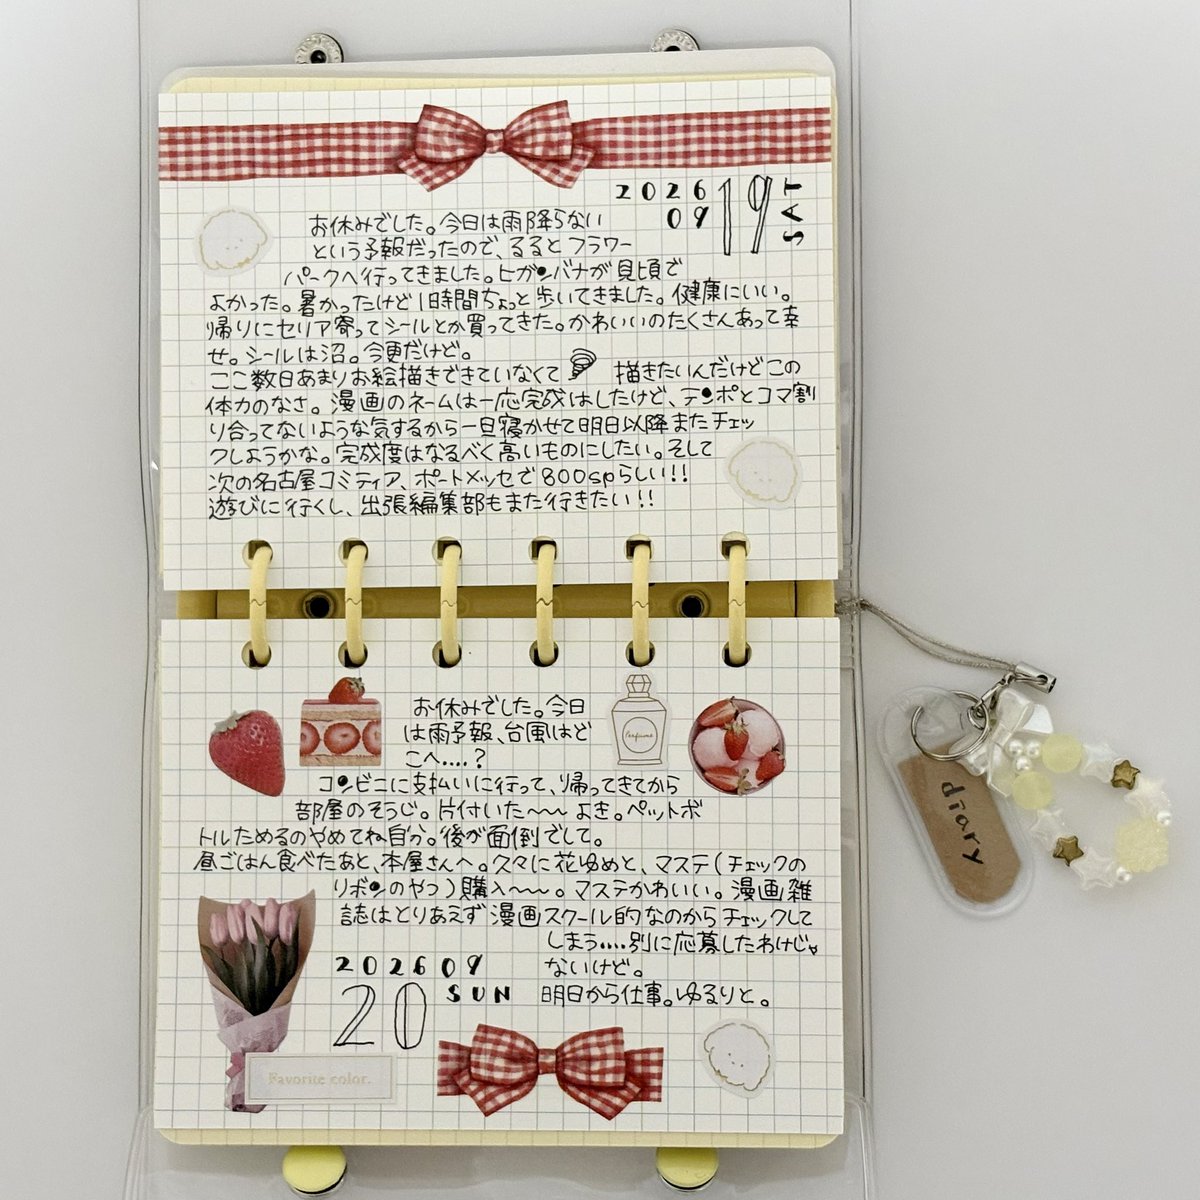 2026
09
19
SAT
お休みでした。今日は雨降らない
という予報だったので、るるとフラワー
パークへ行ってきました。ヒガンバナが見頃で
よかった。暑かったけど1時間ちょっと歩いてきました。健康にいい。
帰りにセリア寄ってシールとか買ってきた。かわいいのたくさんあって幸
せ。シールは沼。今更だけど。
ここ数日あまりお絵描きできていなくて 描きたいんだけどこの
体力のなさ。漫画のネームは一応完成はしたけど、テンポとコマ割
り合ってないような気するから一旦寝かせて明日以降またチェッ
クしようかな。完成度はなるべく高いものにしたい。そして
次の名古屋コミティア、ポートメッセで800spらしい!!
遊びに行くし、出張編集部もまた行きたい!!
お休みでした。今日
は雨予報、台風はど
こへ....?
コンビニに支払いに行って、帰ってきてから
部屋のそうじ。片付いた〜〜よき。ペットボ
トルためるのやめてね自分。後が面倒でして。
昼ごはん食べたあと、本屋さんへ。久々に花ゆめと、マステ(チェックの
リボンのやつ)購入〜〜。マステかわいい。漫画雑
誌はとりあえず漫画スクール的なのからチェックして
しまう....別に応募したわけじゃ
ないけど。
明日から仕事。ゆるりと。
202609
20
SUN
Perfume
Favorite color.
diary